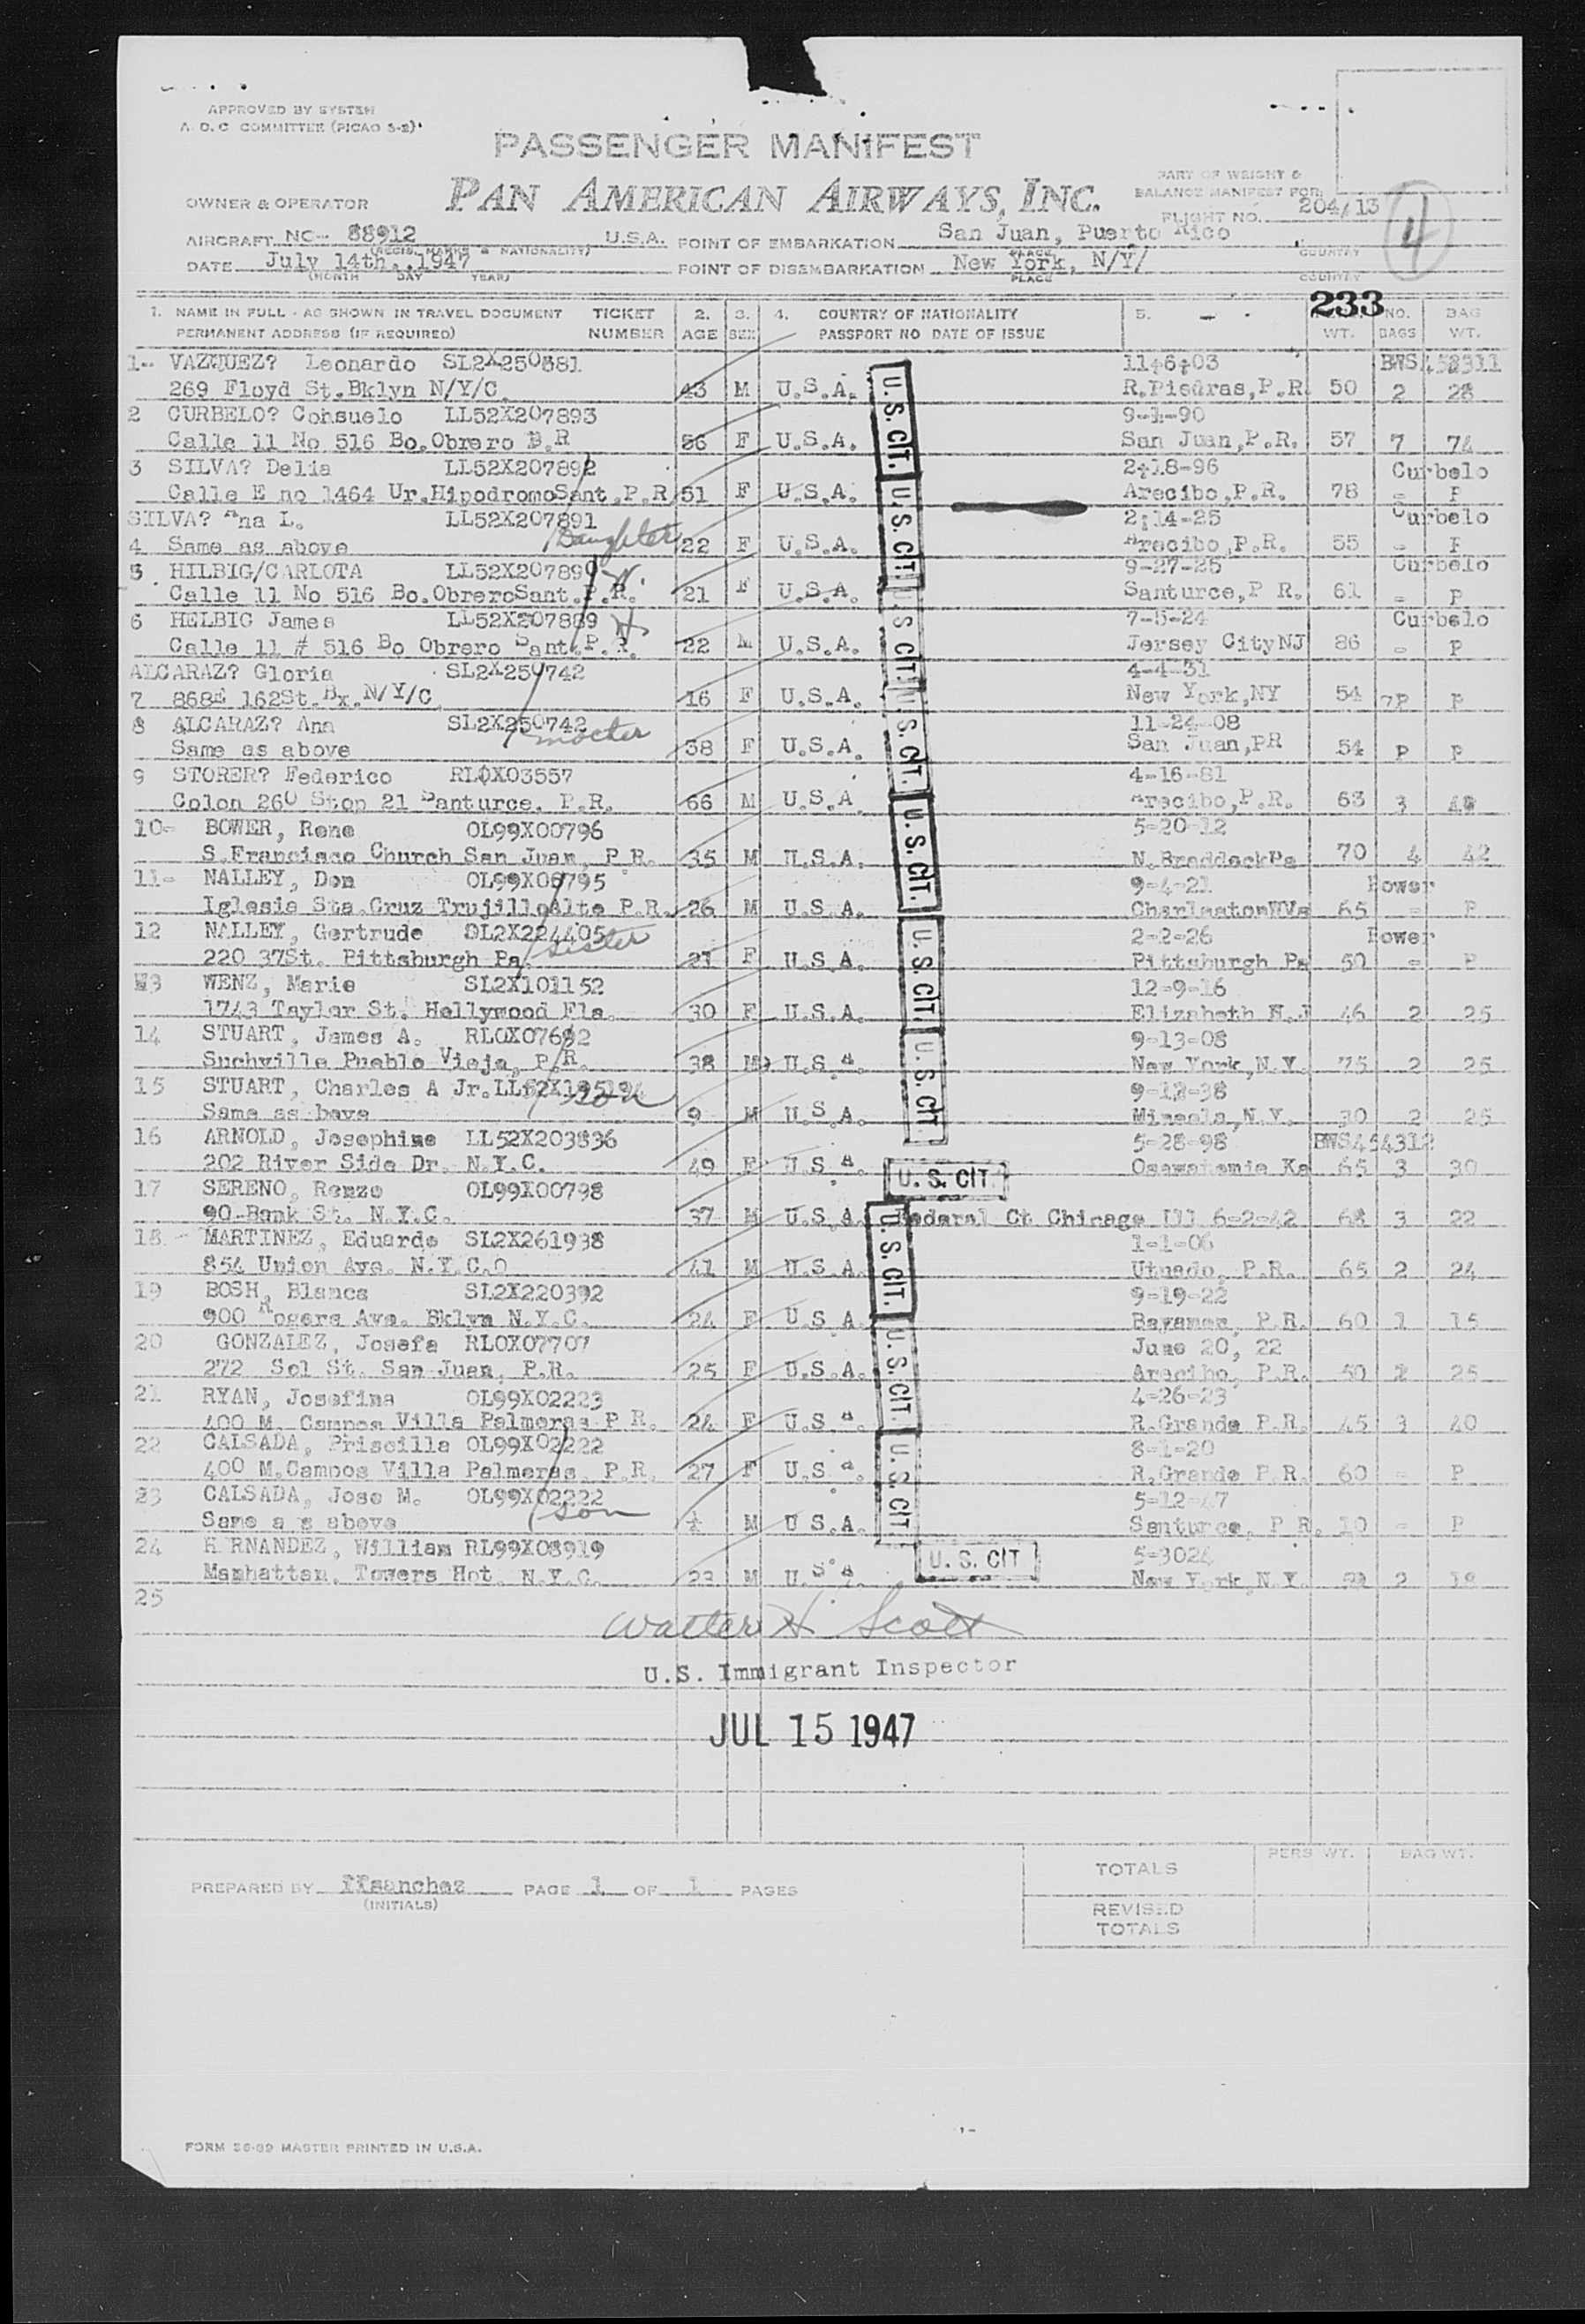 APPROVED BY SYSTEM
A. O. C COMMITTEE (PICAO 5-2)
PASSENGER MANIFEST
PAN AMERICAN AIRWAYS, INC.
PART OF WEIGHT &
BALANCE MANIFEST FOR:
OWNER & OPERATOR
FLIGHT NO. 204/13
4
AIRCRAFT NC- 88912 U.S.A. POINT OF EMBARKATION San Juan, Puerto Rico
(REGIS. MARKS & NATIONALITY) PLACE COUNTRY
DATE July 14th, 1947 POINT OF DISEMBARKATION New York, N/Y/
(MONTH DAY YEAR) PLACE COUNTRY
233
1. NAME IN FULL - AS SHOWN IN TRAVEL DOCUMENT TICKET 2. 3. 4. COUNTRY OF NATIONALITY 5. NO. BAG
PERMANENT ADDRESS (IF REQUIRED) NUMBER AGE SEX PASSPORT NO DATE OF ISSUE WT. BAGS WT.
1-- VAZQUEZ? Leonardo SL2X250381 11-6-03 BWS
269 Floyd St.Bklyn N/Y/C. 43 M U.S.A. U.S.CIT. R.Piedras,P.R. 50 2 28
2 CURBELO? Cohsuelo LL52X207893 9-1-90
Calle 11 No 516 Bo.Obrero P.R 56 F U.S.A. San Juan,P.R. 57 7 74
3 SILVA? Delia LL52X207892 2-18-96 Curbelo
Calle E no 1464 Ur.HipodromoSant.P.R. 51 F U.S.A. U.S.CIT. Arecibo,P.R. 78 - P
SILVA? Ana L. LL52X207891 2-14-25 Curbelo
4 Same as above Daughter 22 F U.S.A. Arecibo,P.R. 55 - P
5 HILBIG/CARLOTA LL52X207890 W. 9-27-25 Curbelo
Calle 11 No 516 Bo.ObreroSant.P.R. 21 F U.S.A. U.S.CIT. Santurce,P R. 61 - P
6 HELBIG James LL52X207889 H 7-5-24 Curbelo
Calle 11 # 516 Bo Obrero Sant.P.R. 22 M U.S.A. Jersey CityNJ 86 - P
ALCARAZ? Gloria SL2X250742 4-4-31
7 868E 162St.Bx.N/Y/C. 16 F U.S.A. U.S.CIT. New York,NY 54 7P P
8 ALCARAZ? Ana SL2X250742 mother 11-24-08
Same as above 38 F U.S.A. San Juan,PR 54 P P
9 STORER? Federico RLOX03557 4-16-81
Colon 260 Stop 21 Santurce. P.R. 66 M U.S.A U.S.CIT. Arecibo,P.R. 63 3
10- BOWER, Rene OL99X00796 5-20-12
S.Francisco Church San Juan, P.R. 35 M U.S.A. N.BraddockPa 70 4 42
11- NALLEY, Don OL99X06795 9-4-21 Bower
Iglesia Sta.Cruz TrujilloAlto P.R. 26 M U.S.A. CharlestonWVa 65 - P
12 NALLEY, Gertrude OL2X224405 sister 2-2-26 Bower
220 37St. Pittsburgh Pa. 21 F U.S.A. U.S.CIT. Pittsburgh Pa 50 - P
13 WENZ, Marie SL2X101152 12-9-16
1743 Taylor St. Hollywood Fla. 30 F U.S.A. Elizabeth N.J 46 2 25
14 STUART, James A. RLOX07692 9-13-08
Suchville Pueblo Viejo, P.R. 38 M U.S.A. U.S.CIT. New York,N.Y. 75 2 25
15 STUART, Charles A Jr.LL52X195194 son 9-12-38
Same as bove 9 M U.S.A. Mineola,N.Y. 30 2 25
16 ARNOLD, Josephine LL52X203836 5-28-98 BWS454312
202 River Side Dr. N.Y.C. 49 F U.S.A. U.S.CIT. Osawatomie Ka 65 3 30
17 SERENO, Renzo OL99X00798
90-Bank St. N.Y.C. 37 M U.S.A. Federal Ct Chicago Ill 6-2-42 68 3 22
18 - MARTINEZ, Eduardo SL2X261938 1-1-06
854 Union Ave. N.Y.C.O 41 M U.S.A. U.S.CIT. Utuado, P.R. 65 2 24
19 BOSH, Blanca SL2X220392 9-19-22
900 Rogers Ave. Bklyn N.Y.C. 24 F U.S.A. Bayamon, P.R. 60 1 15
20 GONZALEZ, Josefa RLOX07707 June 20, 22
272 Sol St. San Juan, P.R. 25 F U.S.A. U.S.CIT. Arecibo, P.R. 50 2 25
21 RYAN, Josefina OL99X02223 4-26-23
400 M. Campos Villa Palmeras P R. 24 F U.S.A. R.Grande P.R. 45 3 40
22 CALSADA, Priscilla OL99X02222 8-1-20
400 M.Campos Villa Palmeras, P.R. 27 F U.S A. U.S.CIT R.Grande P.R. 60 - P
23 CALSADA, Jose M. OL99X02222 son 5-12-47
Same a s above M U S.A. Santurce, P R. 10 - P
24 HERNANDEZ, William RL99X08919 5-3024
Manhattan, Towers Hot. N.Y.C. 23 M U.S.A. U.S.CIT New York,N.Y. 2 18
25
Walter H Scott
U.S. Immigrant Inspector
JUL 15 1947
PERS WT. BAG WT.
TOTALS
PREPARED BY sanchez PAGE 1 OF 1 PAGES
(INITIALS)
REVISED
TOTALS
FORM 36-39 MASTER PRINTED IN U.S.A.